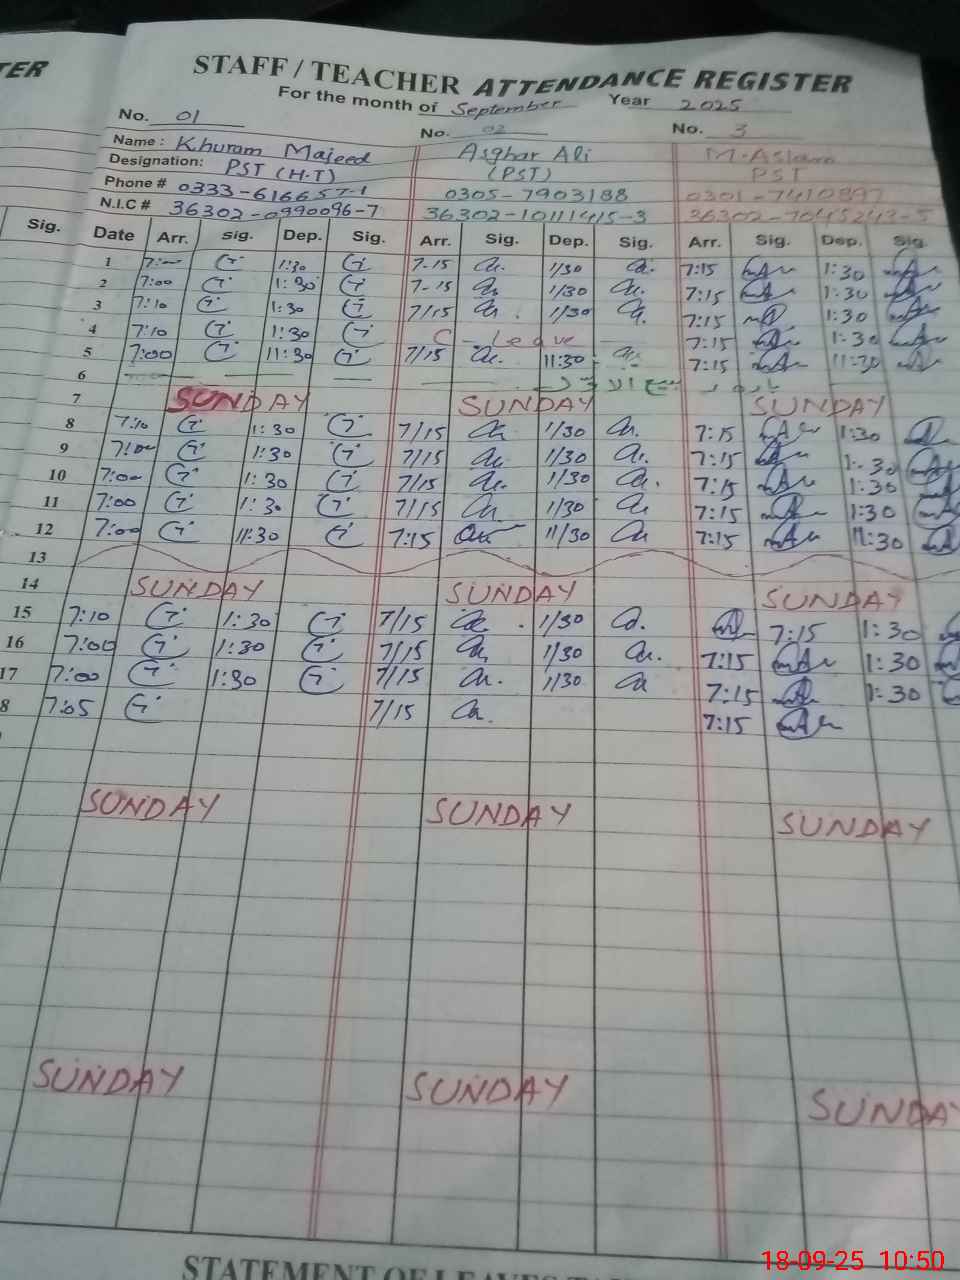 TER
STAFF / TEACHER ATTENDANCE REGISTER
For the month of September Year 2025
No. 01 No. 02 No. 3
Name : Khuram Majeed Asghar Ali M-Aslam
Designation: PST (H-T) (PST) PST
Phone # 0333-6166571 0305-7903188 0301-7410897
N.I.C # 36302-0990096-7 36302-10111415-3
Sig. Date Arr. sig. Dep. Sig. Arr. Sig. Dep. Sig. Arr. Sig. Dep. Sig
1 7:00 1:30 7-15 1/30 7:15 1:30
2 7:00 1:30 7-15 1/30 7:15 1:30
3 7:10 1:30 7/15 1/30 7:15 1:30
4 7:10 1:30 C - Leave 7:15 1:30
5 7:00 11:30 7/15 11:30 7:15 11:30
6
7 SUNDAY SUNDAY SUNDAY
8 7:10 1:30 7/15 1/30 7:15 1:30
9 7:00 1:30 7/15 1/30 7:15 1:30
10 7:00 1:30 7/15 1/30 7:15 1:30
11 7:00 1:30 7/15 1/30 7:15 1:30
12 7:00 11:30 7:15 11/30 7:15 11:30
13
14 SUNDAY SUNDAY SUNDAY
15 7:10 1:30 7/15 1/30 7:15 1:30
16 7:00 1:30 7/15 1/30 7:15 1:30
17 7:00 1:30 7/15 1/30 7:15 1:30
8 7:05 7/15 7:15
SUNDAY SUNDAY SUNDAY
SUNDAY SUNDAY SUNDAY
STATEMENT OF LEAVES
18-09-25 10:50